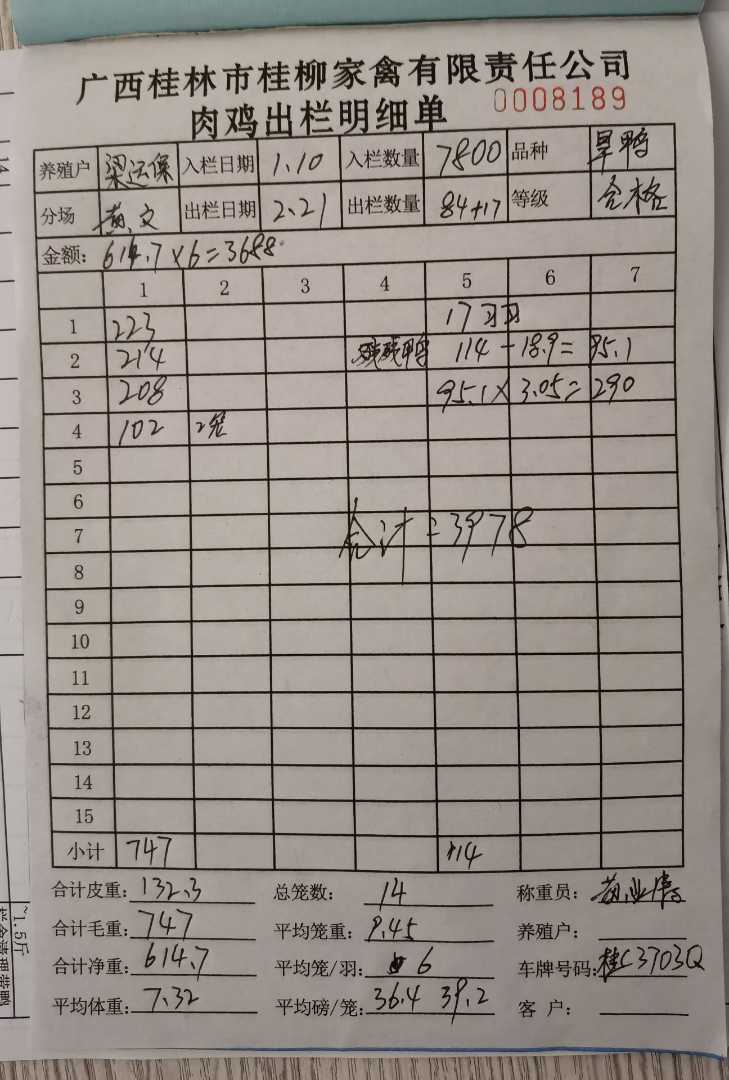 广西桂林市桂柳家禽有限责任公司
肉鸡出栏明细单 0008189
养殖户 梁运保 入栏日期 1.10 入栏数量 7800 品种 旱鸭
分场 黄文 出栏日期 2.21 出栏数量 84+17 等级 合格
金额: 614.7×6=3688
1 2 3 4 5 6 7
1 223 17羽
2 214 残鸭 114-18.9=95.1
3 208 95.1×3.05=290
4 102 2笼
5
6
7 合计=3978
8
9
10
11
12
13
14
15
小计 747 114
合计皮重: 132.3 总笼数: 14 称重员:
合计毛重: 747 平均笼重: 9.45 养殖户:
合计净重: 614.7 平均笼/羽: 6 车牌号码: 桂C3703Q
平均体重: 7.32 平均磅/笼: 36.4 39.2 客户:
~1.5斤